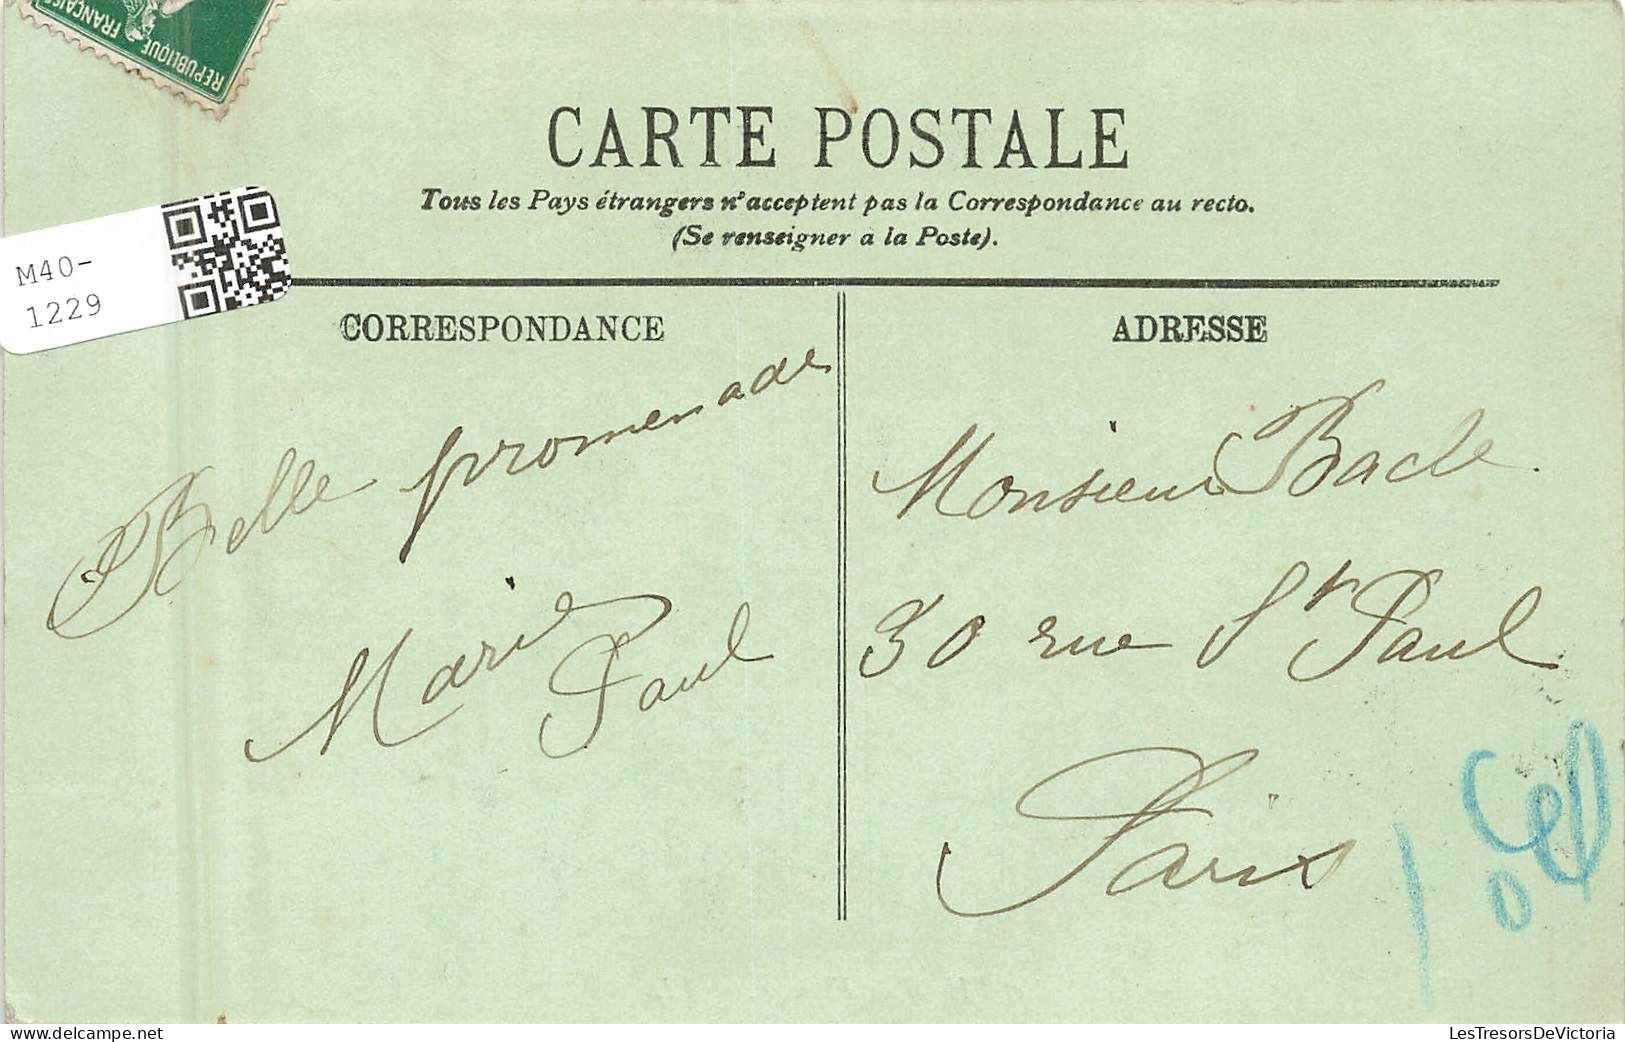 RÉPUBLIQUE FRANÇAISE
M40-
1229
CARTE POSTALE
Tous les Pays étrangers n'acceptent pas la Correspondance au recto.
(Se renseigner a la Poste).
CORRESPONDANCE
Belle promenade
Marie
Paul
ADRESSE
Monsieur Bacle.
30 rue St Paul
Paris
delcampe.net
LesTresorsDeVictoria